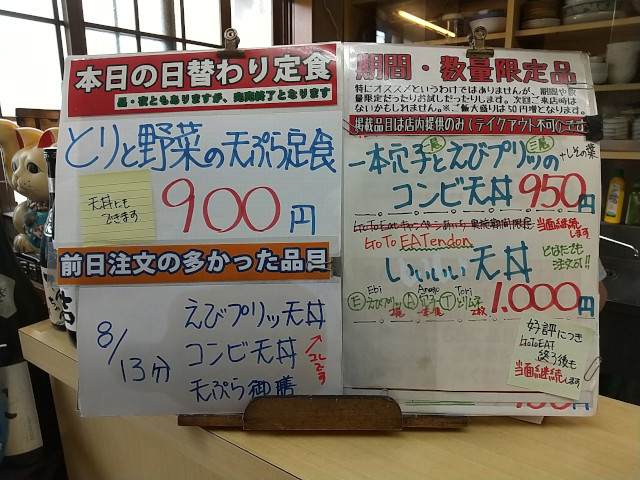 本日の日替わり定食
昼・夜ともありますが、完売終了となります
とりと野菜の天ぷら定食
天丼にも
できます
900円
前日注文の多かった品目
8/13分
えびプリッ天丼
コンビ天丼
天ぷら御膳
コレです
期間・数量限定品
特にオススメというわけではありませんが、期間や数
量限定だったりお試しだったりします。次回ご来店時は
ないかもしれません。※ご飯大盛りは50円増となります。
掲載品目は店内提供のみ(テイクアウト不可)です
一本穴子とえびプリッの
二尾
+しその葉
コンビ天丼 950円
GoToEatキャンペーン
当面継続
します
GoToEATendon
いいいい天丼
どなたでも
注文可!!
Ebi
Anago
Tori
E えびプリッ
A 穴子
T とりムネ
2枚
1,000円
好評につき
GoToEAT
終了後も
当面継続します